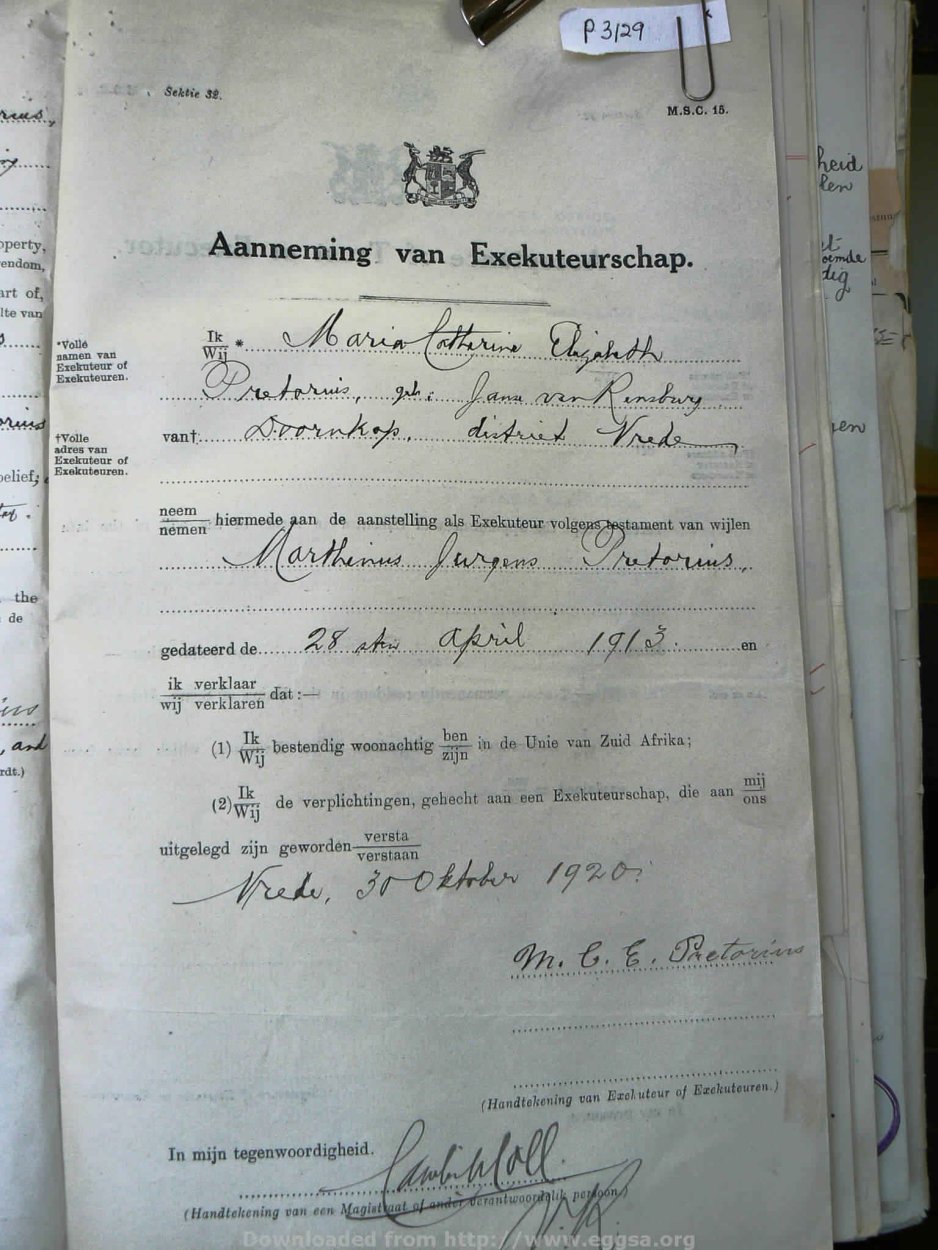 P 3/29
Sektie 32.
M.S.C. 15.
Aanneming van Exekuteurschap.
*Volle namen van Exekuteur of Exekuteuren.
Ik Wij * Maria Catharina Elizabeth
Pretorius, geb: Janse van Rensburg
†Volle adres van Exekuteur of Exekuteuren.
van† Doornkop, district Vrede
neem nemen hiermede aan de aanstelling als Exekuteur volgens testament van wijlen
Marthinus Jurgens Pretorius,
gedateerd de 28 sten April 1913. en
ik verklaar wij verklaren dat :—
(1) Ik Wij bestendig woonachtig ben zijn in de Unie van Zuid Afrika;
(2) Ik Wij de verplichtingen, gehecht aan een Exekuteurschap, die aan mij ons
uitgelegd zijn geworden versta verstaan
Vrede, 30 Oktober 1920.
M. C. E. Pretorius
(Handtekening van Exekuteur of Exekuteuren.)
In mijn tegenwoordigheid.
(Handtekening van een Magistraat of ander verantwoordelik persoon)
Downloaded from http://www.eggsa.org
operty,
endom,
art of,
lte van
belief;
the
de
, and
rdt.)
heid
len
oemde
dig
en